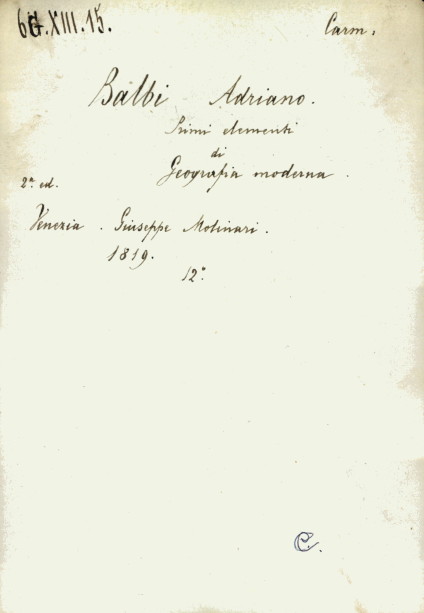 6G.XIII.15.
Carm.
Balbi Adriano.
Primi elementi
di
Geografia moderna.
2ª ed.
Venezia. Giuseppe Molinari.
1819.
12°.
C.